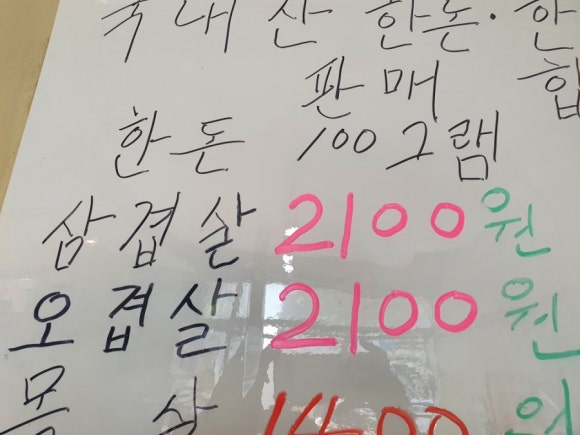 국내산 한돈·한
판매 합
한돈 100그램
삼겹살 2100원
오겹살 2100원
목살 1400원